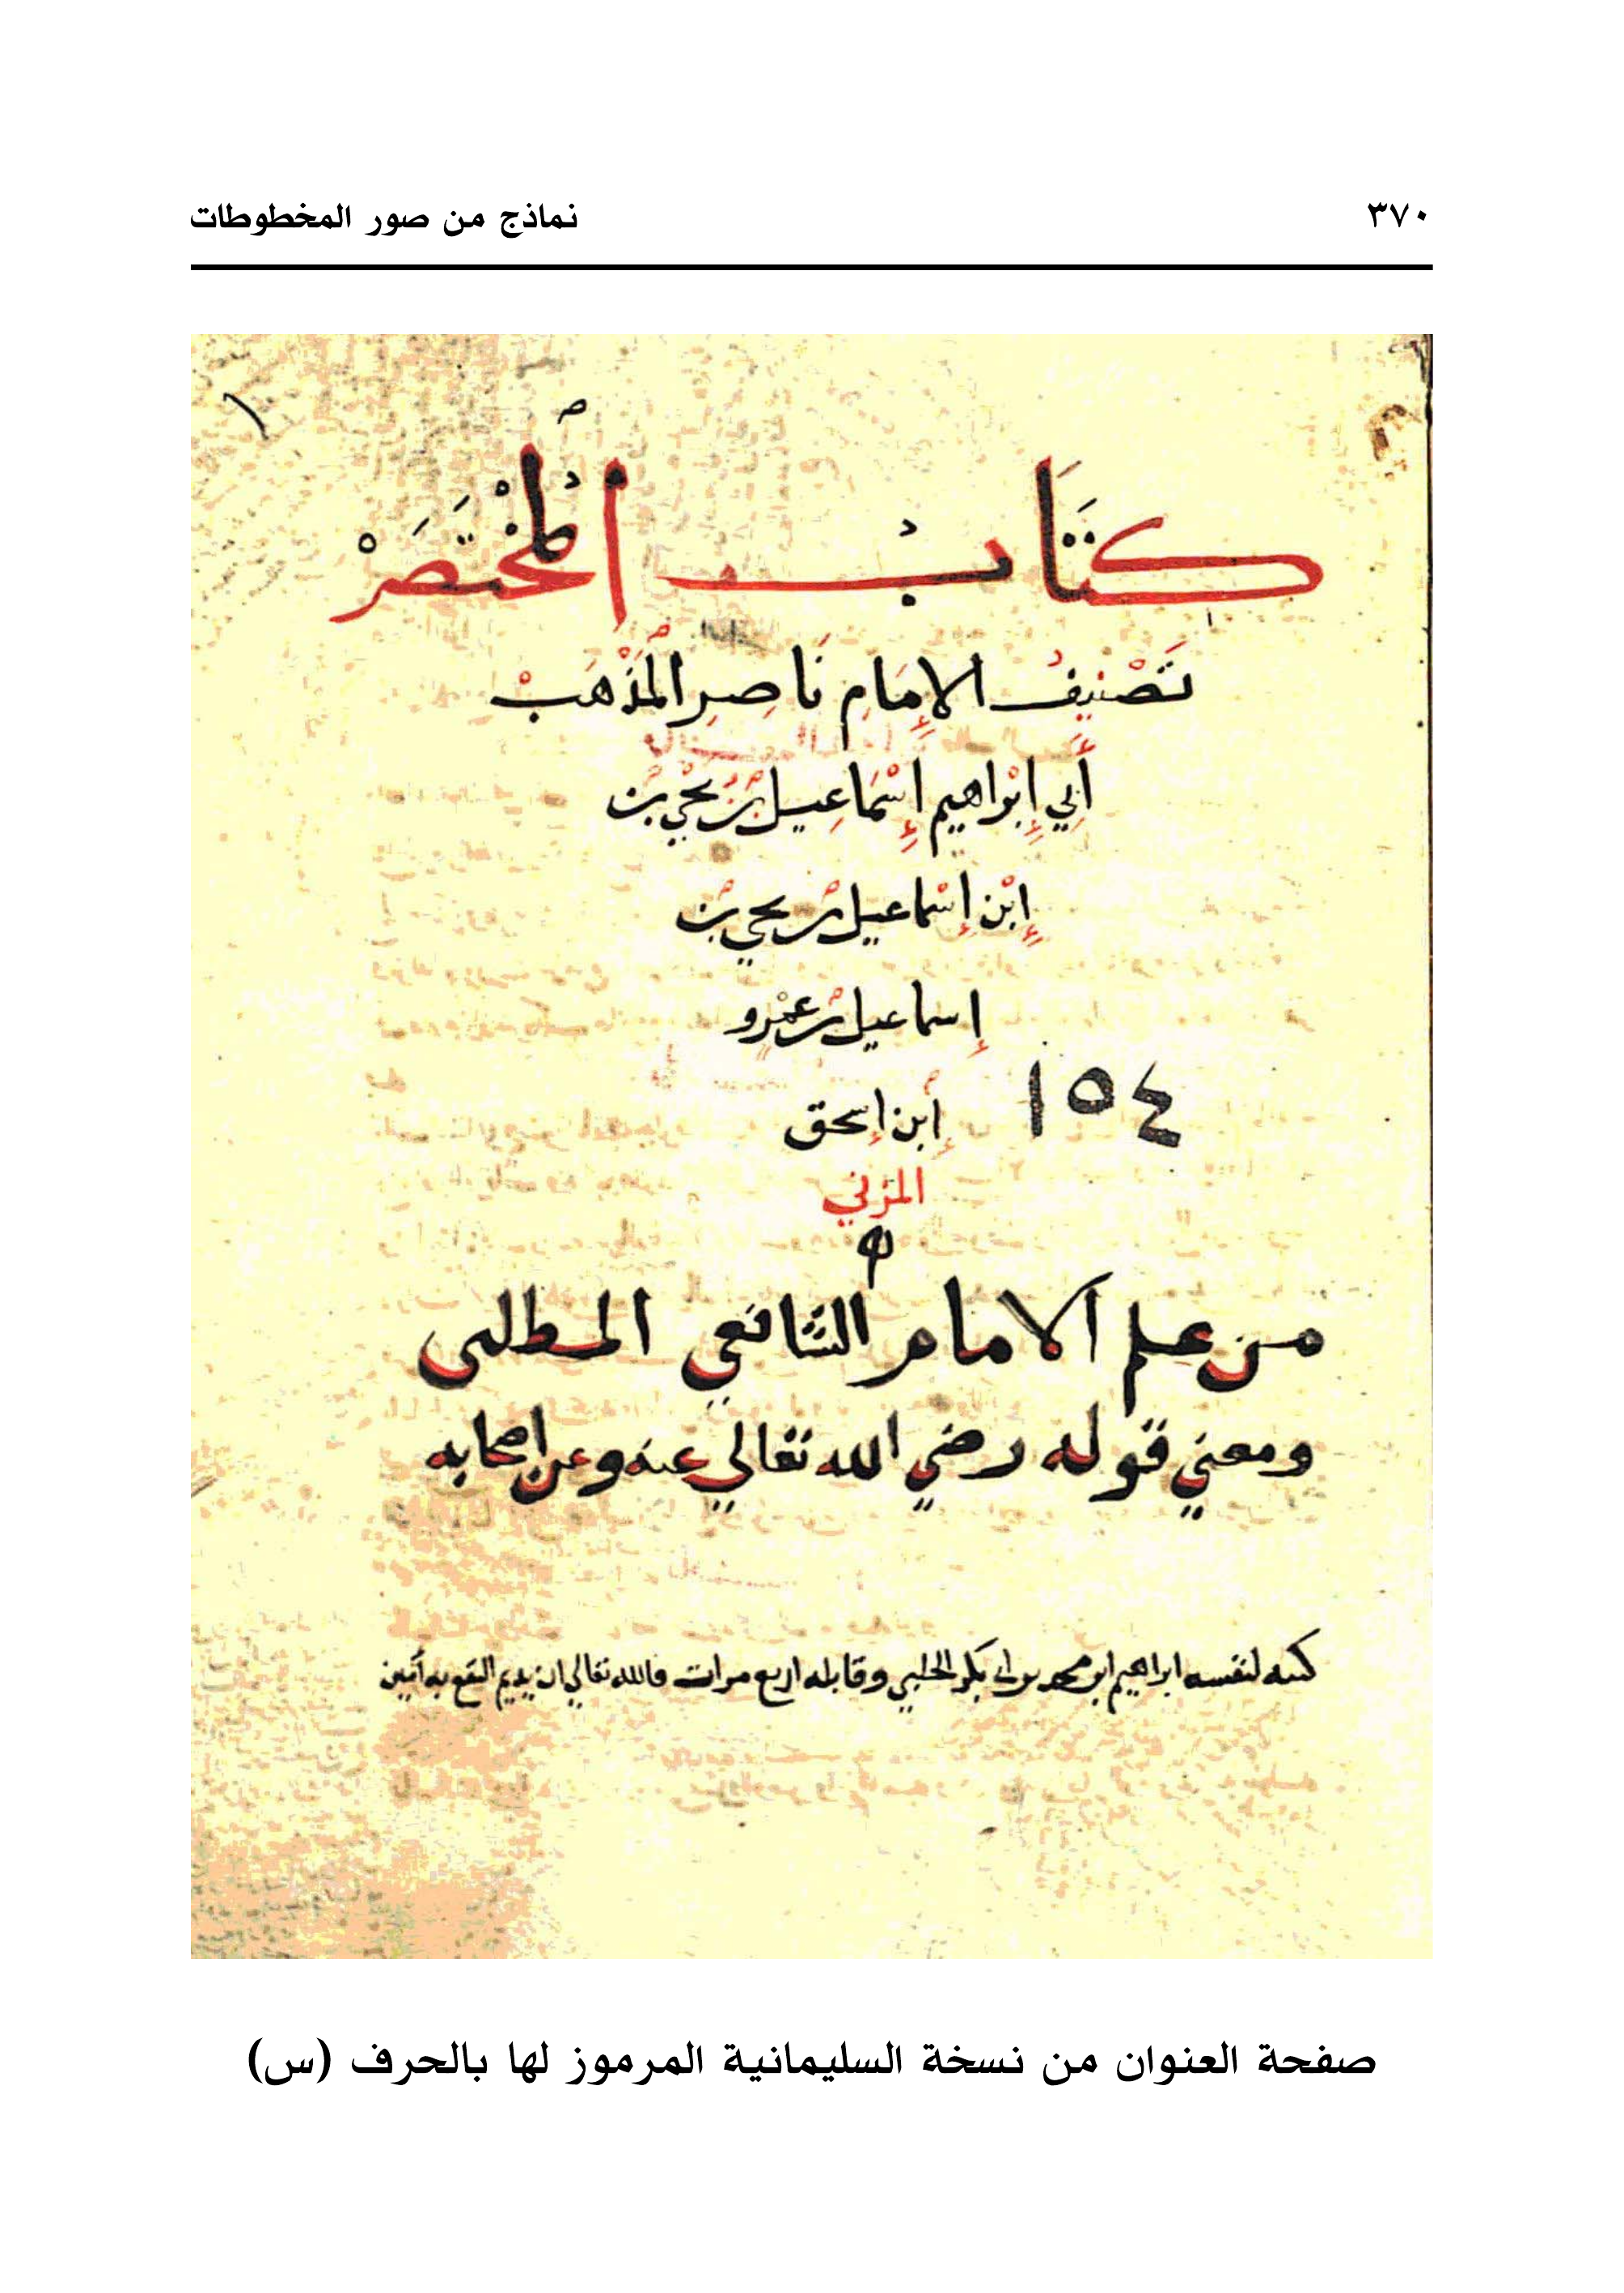 ٣٧٠
نماذج من صور المخطوطات
١
كتَابُ المُخْتَصَرْ
تَصْنِيفُ الإِمَامِ نَاصِرِ المَذْهَبْ
أَبِي إِبْرَاهِيم إِسْمَاعِيل بْن يَحْيى بْن
إِبْن إِسْماعيل بن يحيى بن
إِسماعيل بن عمْرو
إبن إسحق
١٥٤
المزني
من علم الامام الشافعي المطلبى
ومعني قوله رضي الله تعالي عنه وعن اصحابه
كتبه لنفسه ابراهيم ابن محمد بن ابي بكر الحلبي وقابله اربع مرات فالله تعالي ان يديم النفع به آمين
صفحة العنوان من نسخة السليمانية المرموز لها بالحرف (س)